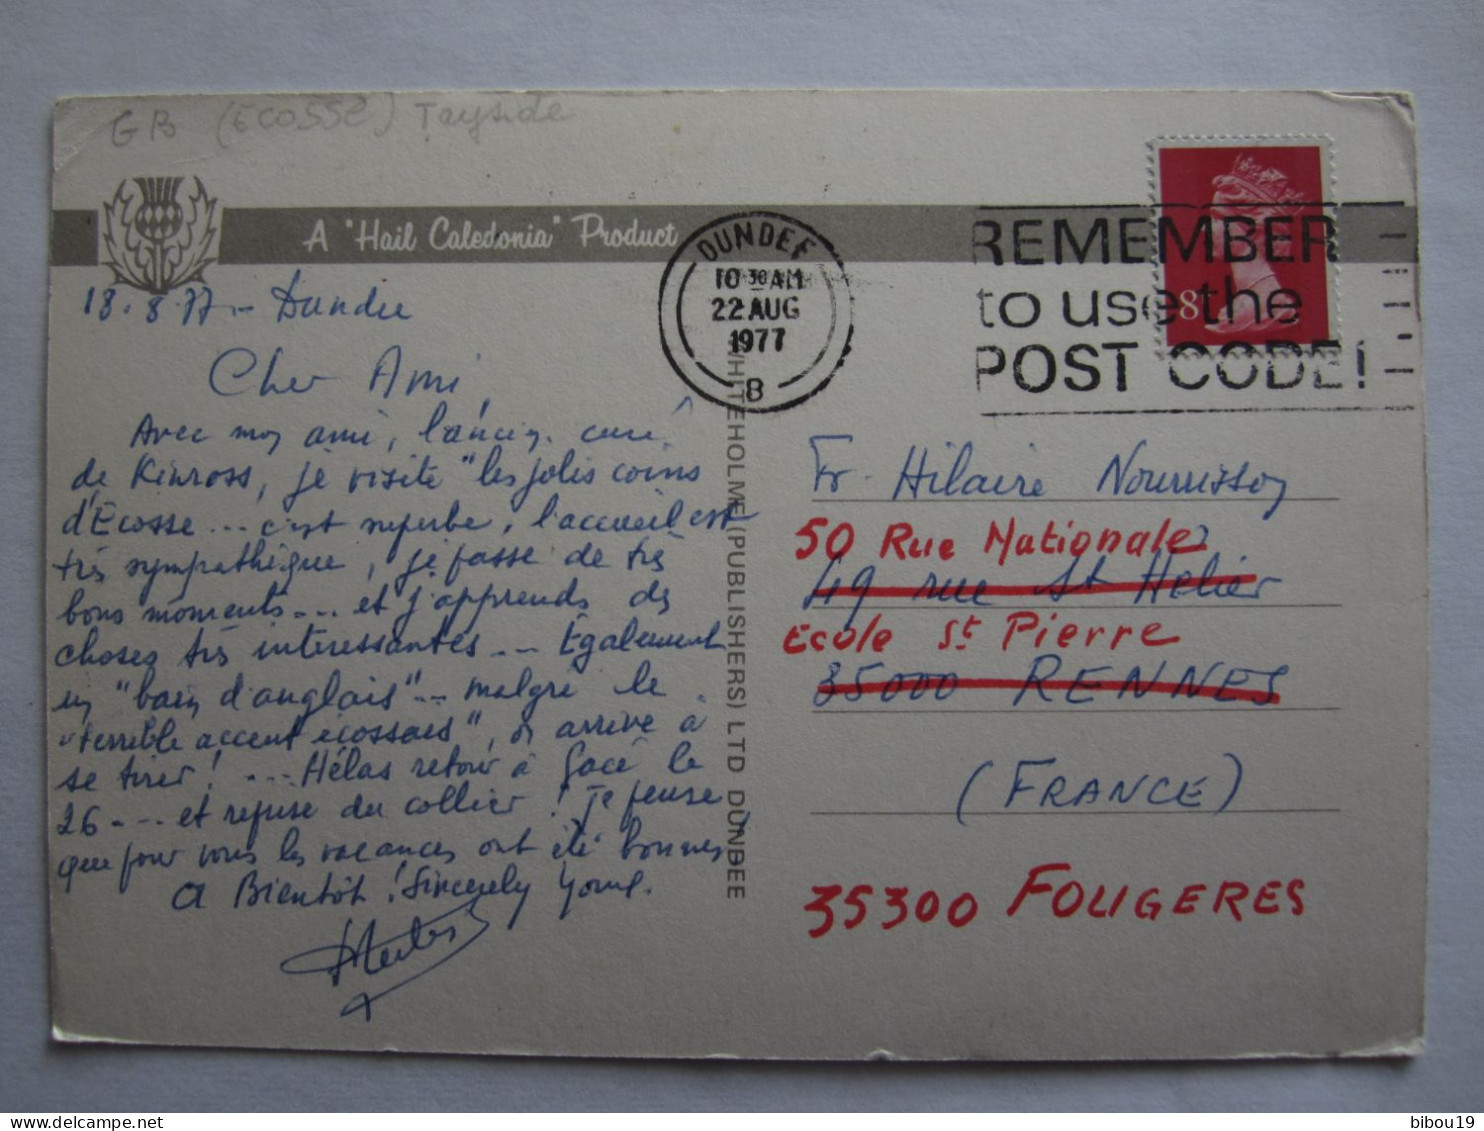 GB (ECOSSE) Tayside
A "Hail Caledonia" Product
18.8.77 - Dundee
Cher Ami
Avec mon ami, l'ancien curé
de Kinross, je visite "les jolis coins
d'Ecosse... c'est superbe, l'accueil est
très sympathique, je passe de très
bons moments... et j'apprends des
choses très intéressantes... Egalement
un "bain d'anglais"... malgré le
"terrible accent écossais", on arrive à
se tirer! ... Hélas retour à Gacé le
26... et reprise du collier! Je pense
que pour vous les vacances ont été bonnes
A Bientôt! Sincerely Yours.
WHITEHOLME (PUBLISHERS) LTD DUNDEE
DUNDEE
10 30 AM
22 AUG
1977
8
REMEMBER
to use the
POST CODE!
8
Fr. Hilaire Nourrisson
50 Rue Nationale
49 rue St Hélier
Ecole St Pierre
35000 RENNES
(FRANCE)
35300 FOUGERES
bibou19